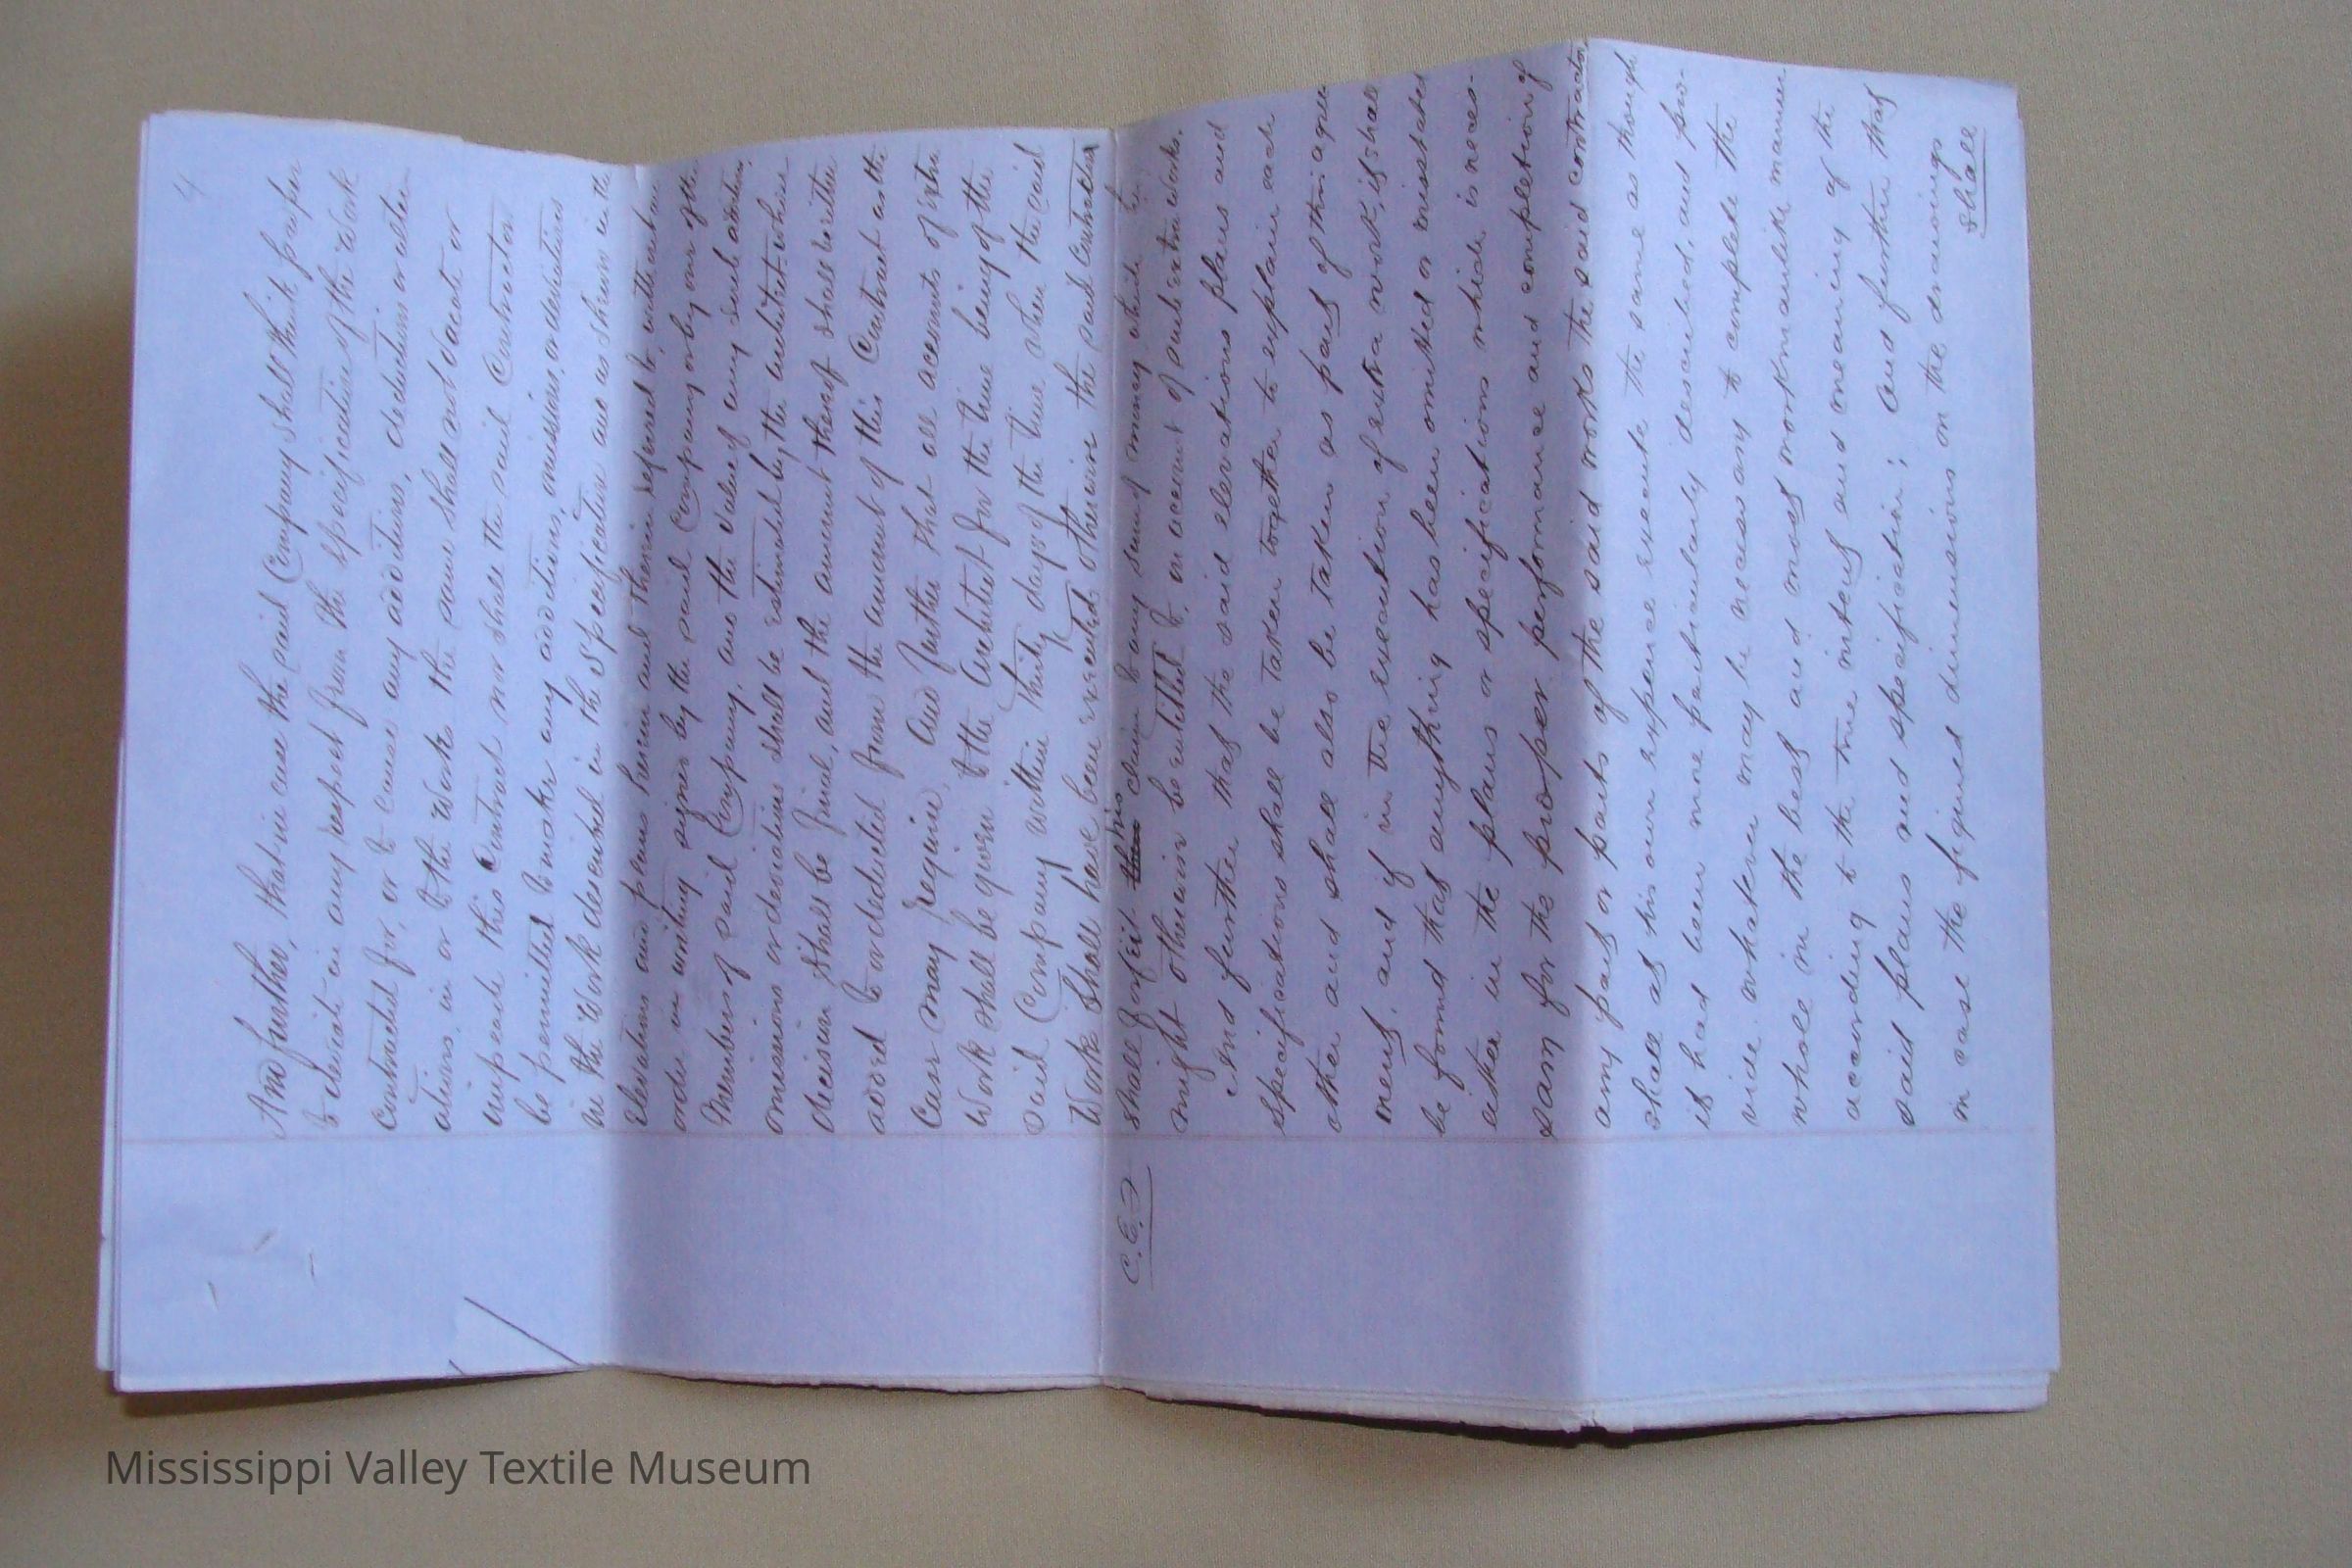 4
And further, that in case the said Company shall think proper
to deviate in any respect from the specification of the Work
Contracted for, or to cause any additions, deductions or alter
ations, in or to the Work the same shall not vacate or
impeach this Contract nor shall the said Contractor
be permitted to make any additions, omissions, or deviations
in the Work described in the Specification and as shewn in the
Elevations and plans herein and therein referred to, without an
order in writing signed by the said Company or by one of the
Members of said Company, and the value of any such additions
omissions or deviations shall be estimated by the architect whose
decision shall be final, and the amount thereof shall be either
added to or deducted from the amount of this Contract as the
Case may require, And further that all accounts of extra
Work shall be given to the Architect for the time being of the
said Company within thirty days of the time when the said
Work shall have been executed otherwise the said Contractor
C.E.F shall forfeit his claim to any sum of money which he
might otherwise be entitled to, on account of such extra works.
And further that the said elevations plans and
specifications shall be taken together to explain each
other and shall also be taken as part of this agree
ment, and if in the execution of extra work, it shall
be found that anything has been omitted or misstated
either in the plans or specifications which is neces-
sary for the proper performance and completion of
any part or parts of the said works the said contractor
shall at his own expence execute the same as though
it had been more particularly described, and pro-
vide whatever may be necessary to complete the
whole in the best and most workmanlike manner
according to the true intent and meaning of the
said plans and specification; and further that
in case the figured dimensions on the drawings
shall
Mississippi Valley Textile Museum